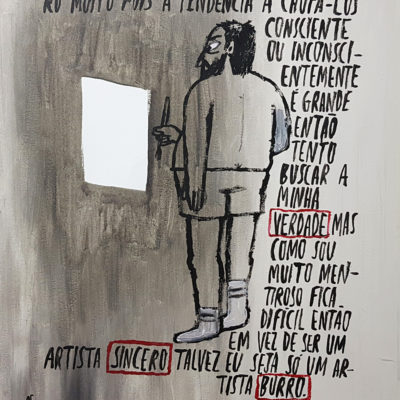 RO MUITO POIS A TENDÊNCIA A CHUPÁ-LOS
CONSCIENTE
OU INCONSCI-
ENTEMENTE
É GRANDE
ENTÃO
TENTO
BUSCAR A
MINHA
VERDADE MAS
COMO SOU
MUITO MEN-
TIROSO FICA
DIFÍCIL ENTÃO
EM VEZ DE SER UM
ARTISTA SINCERO TALVEZ EU SEJA SÓ UM AR-
TISTA BURRO.